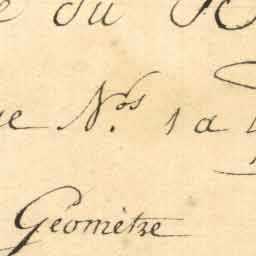 du
Nos 1 a
Géomètre